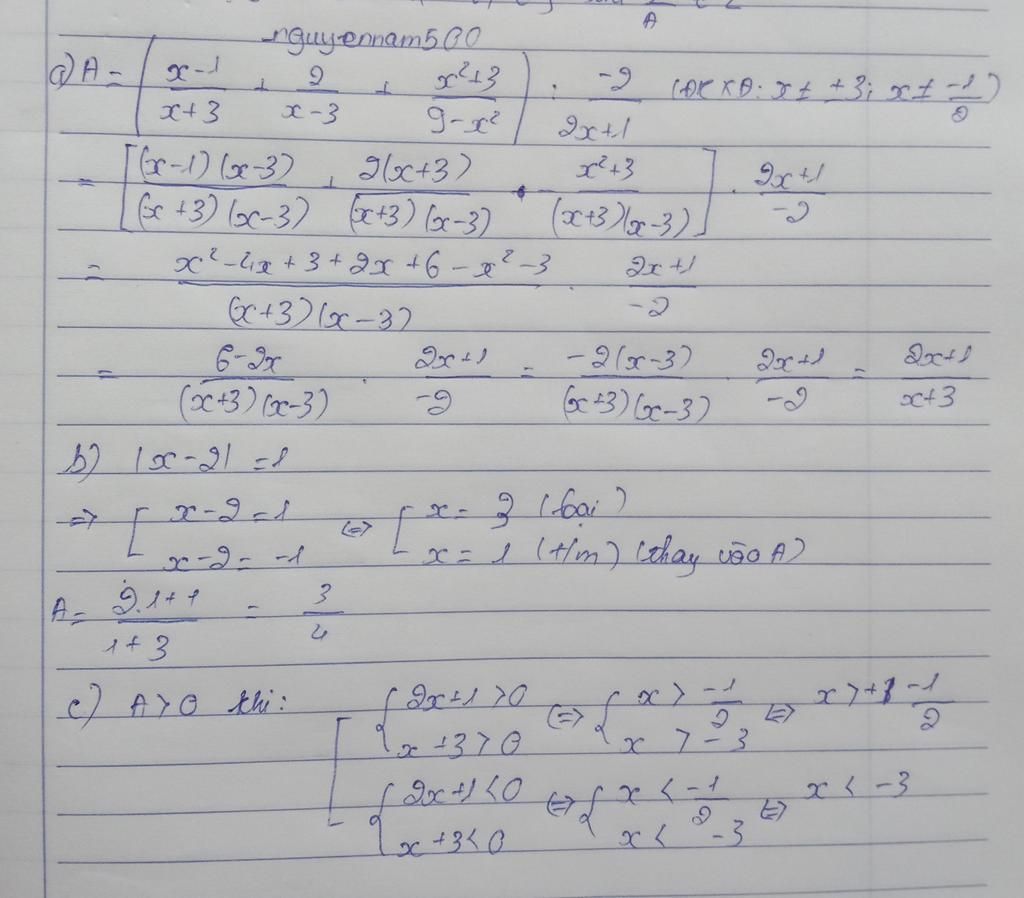 nguyennam500
a) A = ( (x-1)/(x+3) + 2/(x-3) + (x²+3)/(9-x²) ) : (-2)/(2x+1) (ĐKXĐ: x ≠ ±3; x ≠ -1/2)
= [ (x-1)(x-3)/((x+3)(x-3)) + 2(x+3)/((x+3)(x-3)) - (x²+3)/((x+3)(x-3)) ] . (2x+1)/(-2)
= (x²-4x+3+2x+6-x²-3)/((x+3)(x-3)) . (2x+1)/(-2)
= (6-2x)/((x+3)(x-3)) . (2x+1)/(-2) = -2(x-3)/((x+3)(x-3)) . (2x+1)/(-2) = (2x+1)/(x+3)
b) |x-2| = 1
=> [ x-2 = 1 <=> [ x = 3 (loại)
x-2 = -1 x = 1 (t/m) (thay vào A)
A = (2.1+1)/(1+3) = 3/4
c) A > 0 khi: [ { 2x+1 > 0 <=> { x > -1/2 <=> x > -1/2
x+3 > 0 x > -3
{ 2x+1 < 0 <=> { x < -1/2 <=> x < -3
x+3 < 0 x < -3